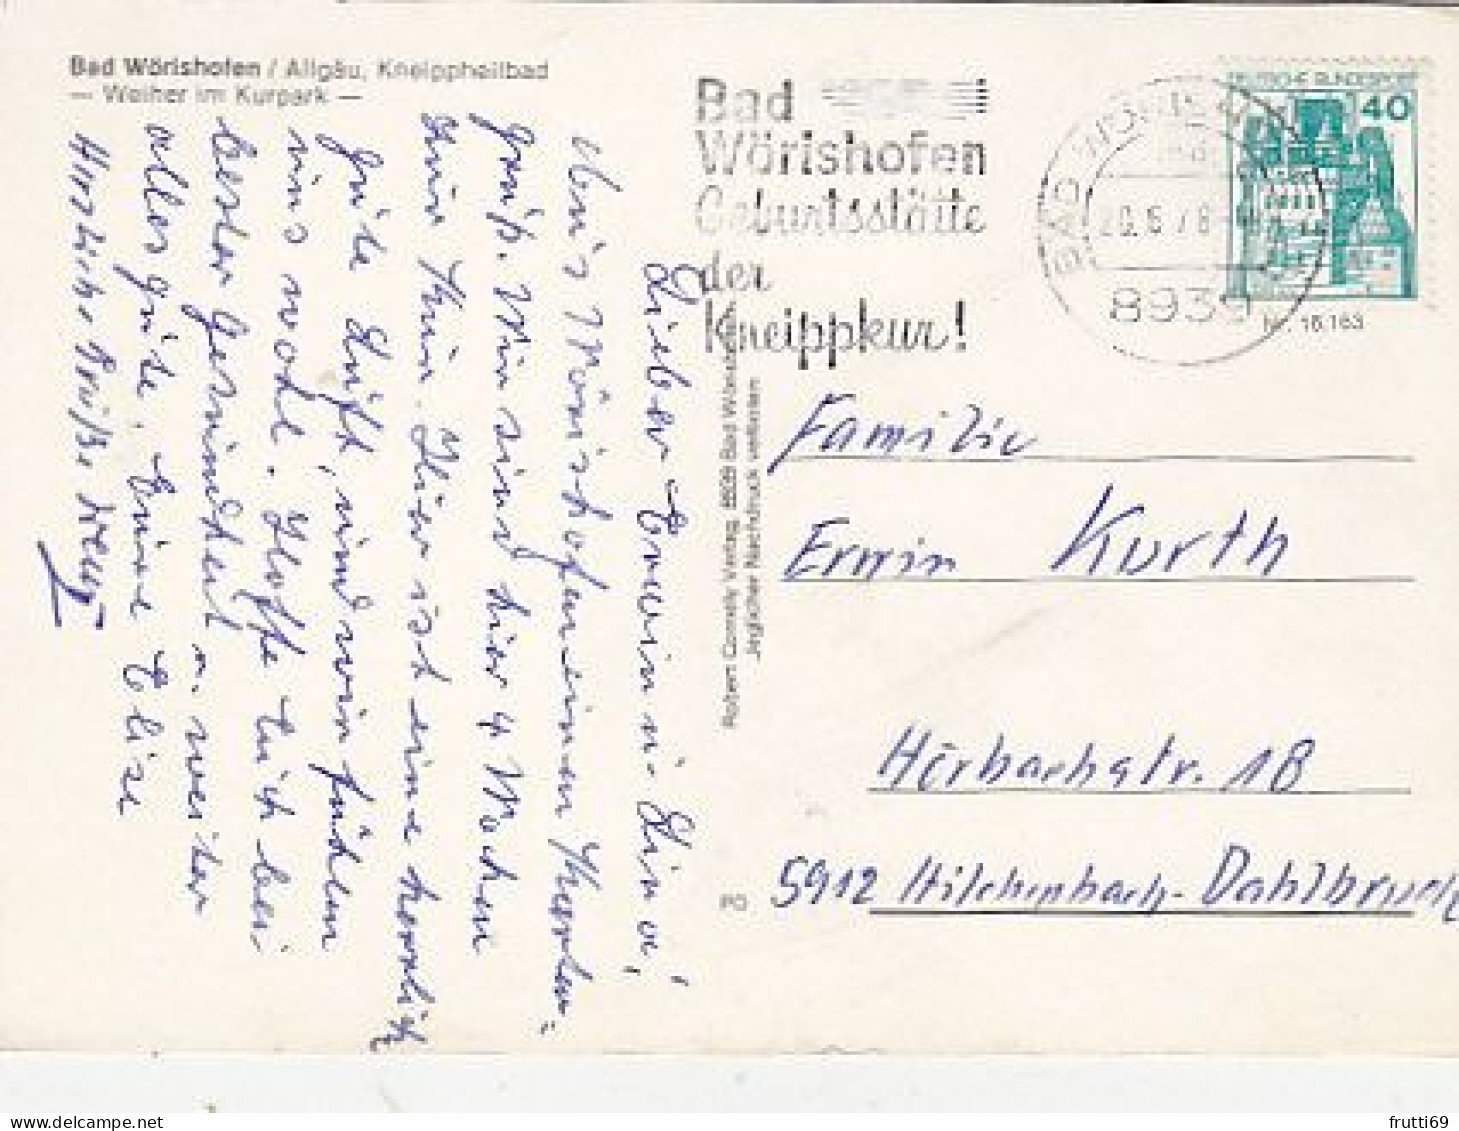 Bad Wörishofen / Allgäu, Kneippheilbad
— Weiher im Kurpark —
Bad
Wörishofen
Geburtsstätte
der
Kneippkur!
BAD WÖRISH
20.6.78
8939
DEUTSCHE BUNDESPOST
40
Nr. 16 163
Lieber Erwin u. Lina,
Aus Wörishofen einen
Gruß. Wir sind hier 4 Wochen
zur Kur. Hier ist eine herrlich
gute Luft, und wir fühlen
uns wohl. Hoffe Euch bei
bester Gesundheit u. weiter
alles gute. Eure Elise
Herzliche Grüße
Robert Connely Verlag, 8939 Bad
Jeglicher Nachdruck verboten
PO
Familie
Erwin Kurth
Hörbachstr. 18
5912 Hilchenbach-Dahlbruch
frutti69